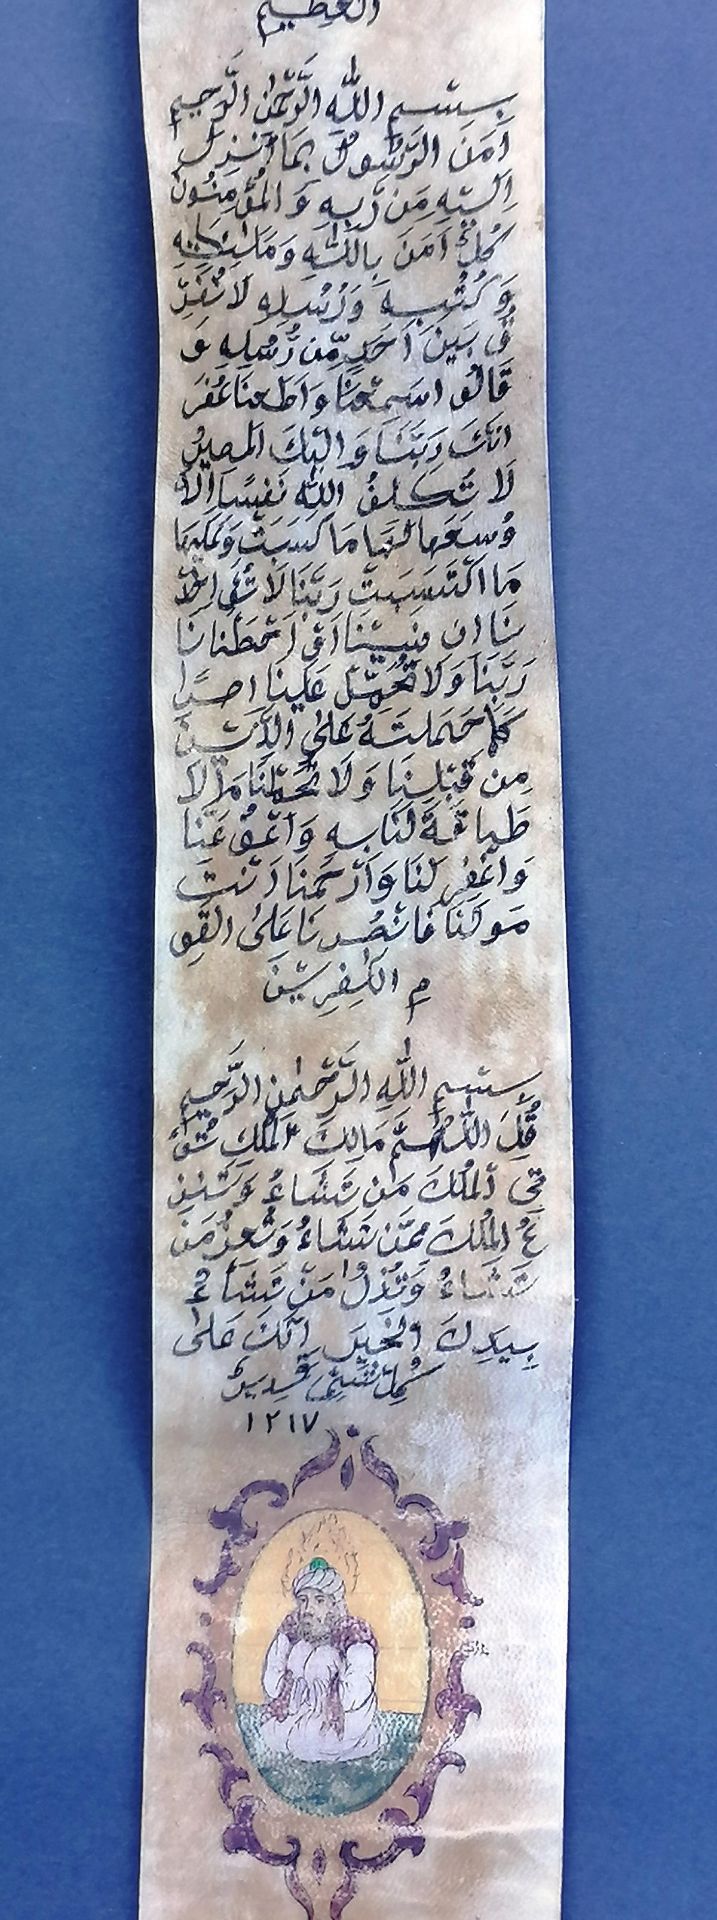 العظيم
بسم الله الرَّحمٰن الرَّحيم
اٰمَنَ الرَّسُولُ بِمَا اُنْزِلَ
اِلَيْهِ مِنْ رَبِّهِ وَ الْمُؤْمِنُونَ
كُلٌّ اٰمَنَ بِاللّٰهِ وَمَلٰئِكَتِهِ
وَ كُتُبِهِ وَرُسُلِهِ لَا نُفَرِّ
قُ بَيْنَ اَحَدٍ مِّن رُّسُلِهِ وَ
قَالُو اسَمِعْنَا وَاَطَعنَا غُفرَ
انَكَ رَبَّنَا وَ اِلَيْكَ المَصِيرُ
لَا تُكلفُ اللّٰه نَفْسًا اِلَّا
وُسعَهَا لَهَا مَا كَسَبَتْ وَعَلَيْهَا
مَا اكْتَسَبَتْ رَبَّنَا لَا تُؤَاخِذْ
نَا اِن نَسِيْنَا اَوْ اَخْطَئْنَا نَا
رَبَّنَا وَلَا تُحَمِّلْ عَلَينَا اِصرًا
كَمَا حَمَلتَهُ عَلَى الَّذِيْنَ
مِن قَبْلِنَا وَلَا تُحَمِّلْنَا مَا لَا
طَا قَةَ لَنَا بِهِ وَاعْفُ عَنَّا
وَاغْفِر لَنَا وَارْحَمنَا اَنْتَ
مَولٰنَا فَانْصُرنَا عَلَى القَو
مِ الكٰفِرِيْنَ
بسم اللّٰهِ الرَّحْمٰنِ الرَّحِيم
قُلِ اللّٰهُمَّ مَالِكَ المُلكِ تُؤْ
تِي المُلْكَ مَن تَشَاءُ وَتَنْزِ
عُ المُلكَ مِمَّن تَشَاءُ وَتُعِزُّ مَن
تَشَاءُ وَتُذِلُّ مَنْ تَشَاءُ
بِيَدِكَ الخَيرِ اِنَّكَ عَلٰى
كُلِّ شَيْءٍ قَدِيرٌ
١٢١٧